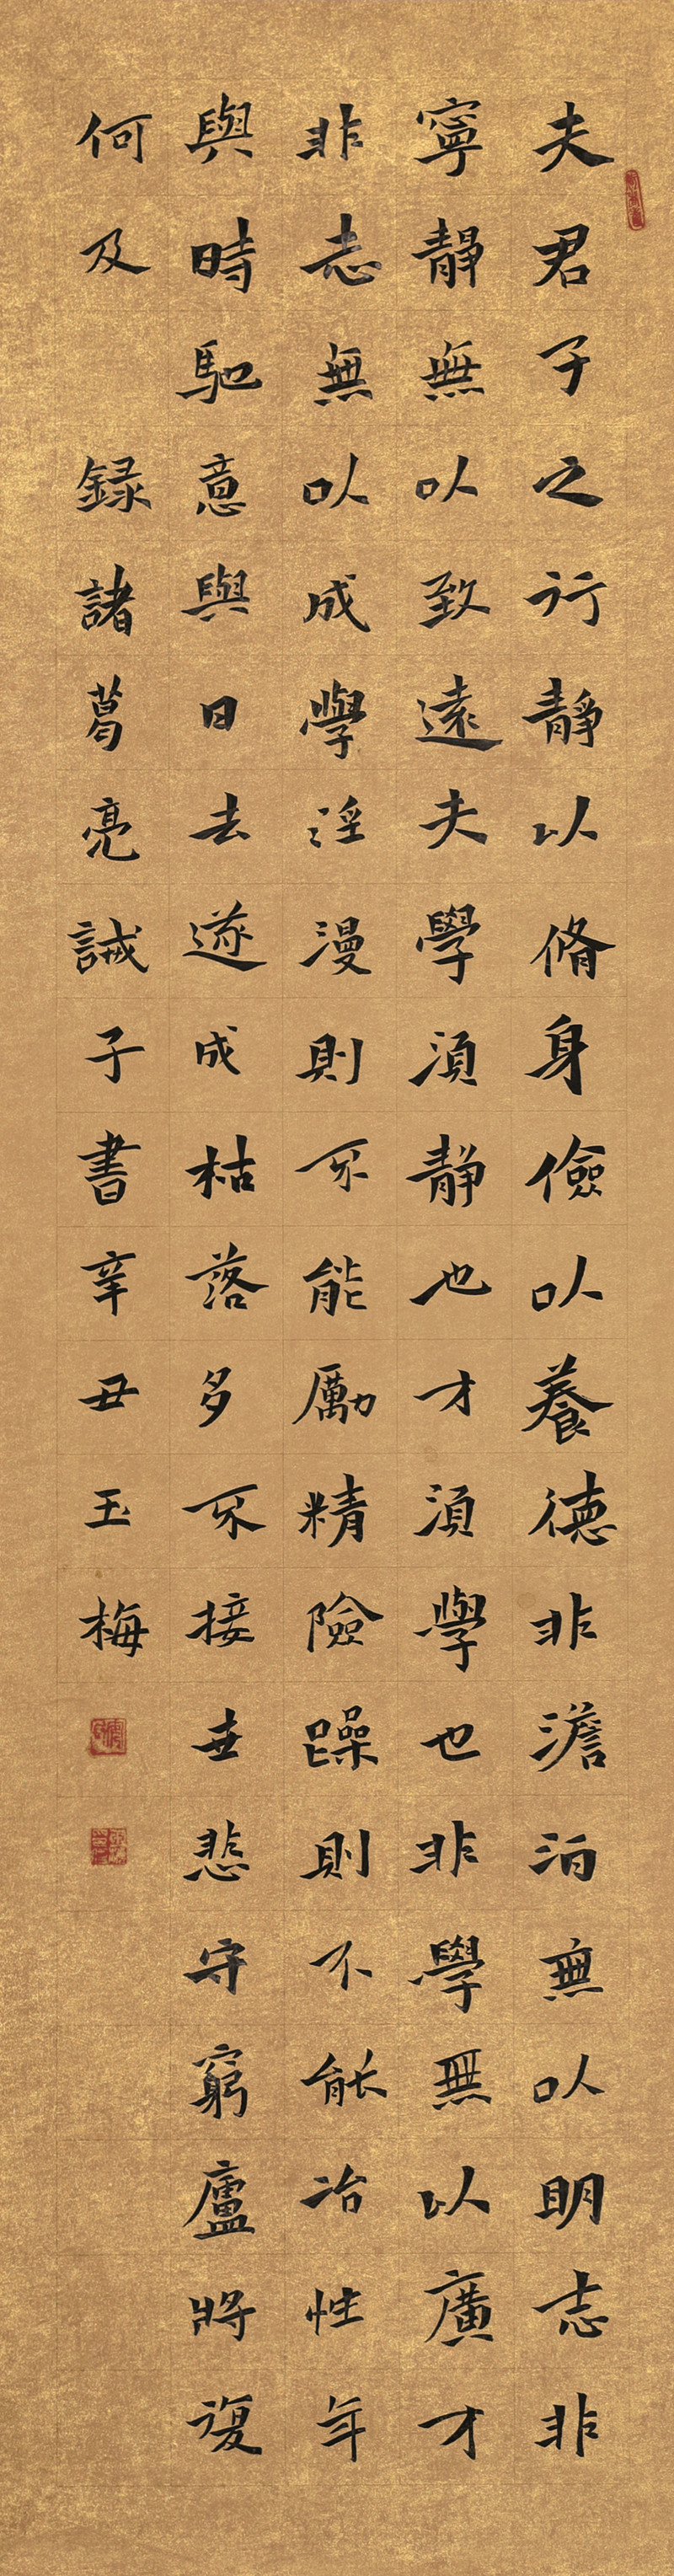 夫君子之行靜以脩身儉以養德非澹泊無以明志非
寧靜無以致遠夫學須靜也才須學也非學無以廣才
非志無以成學淫漫則不能勵精險躁則不能冶性年
與時馳意與日去遂成枯落多不接世悲守窮廬將復
何及 録諸葛亮誡子書辛丑玉梅